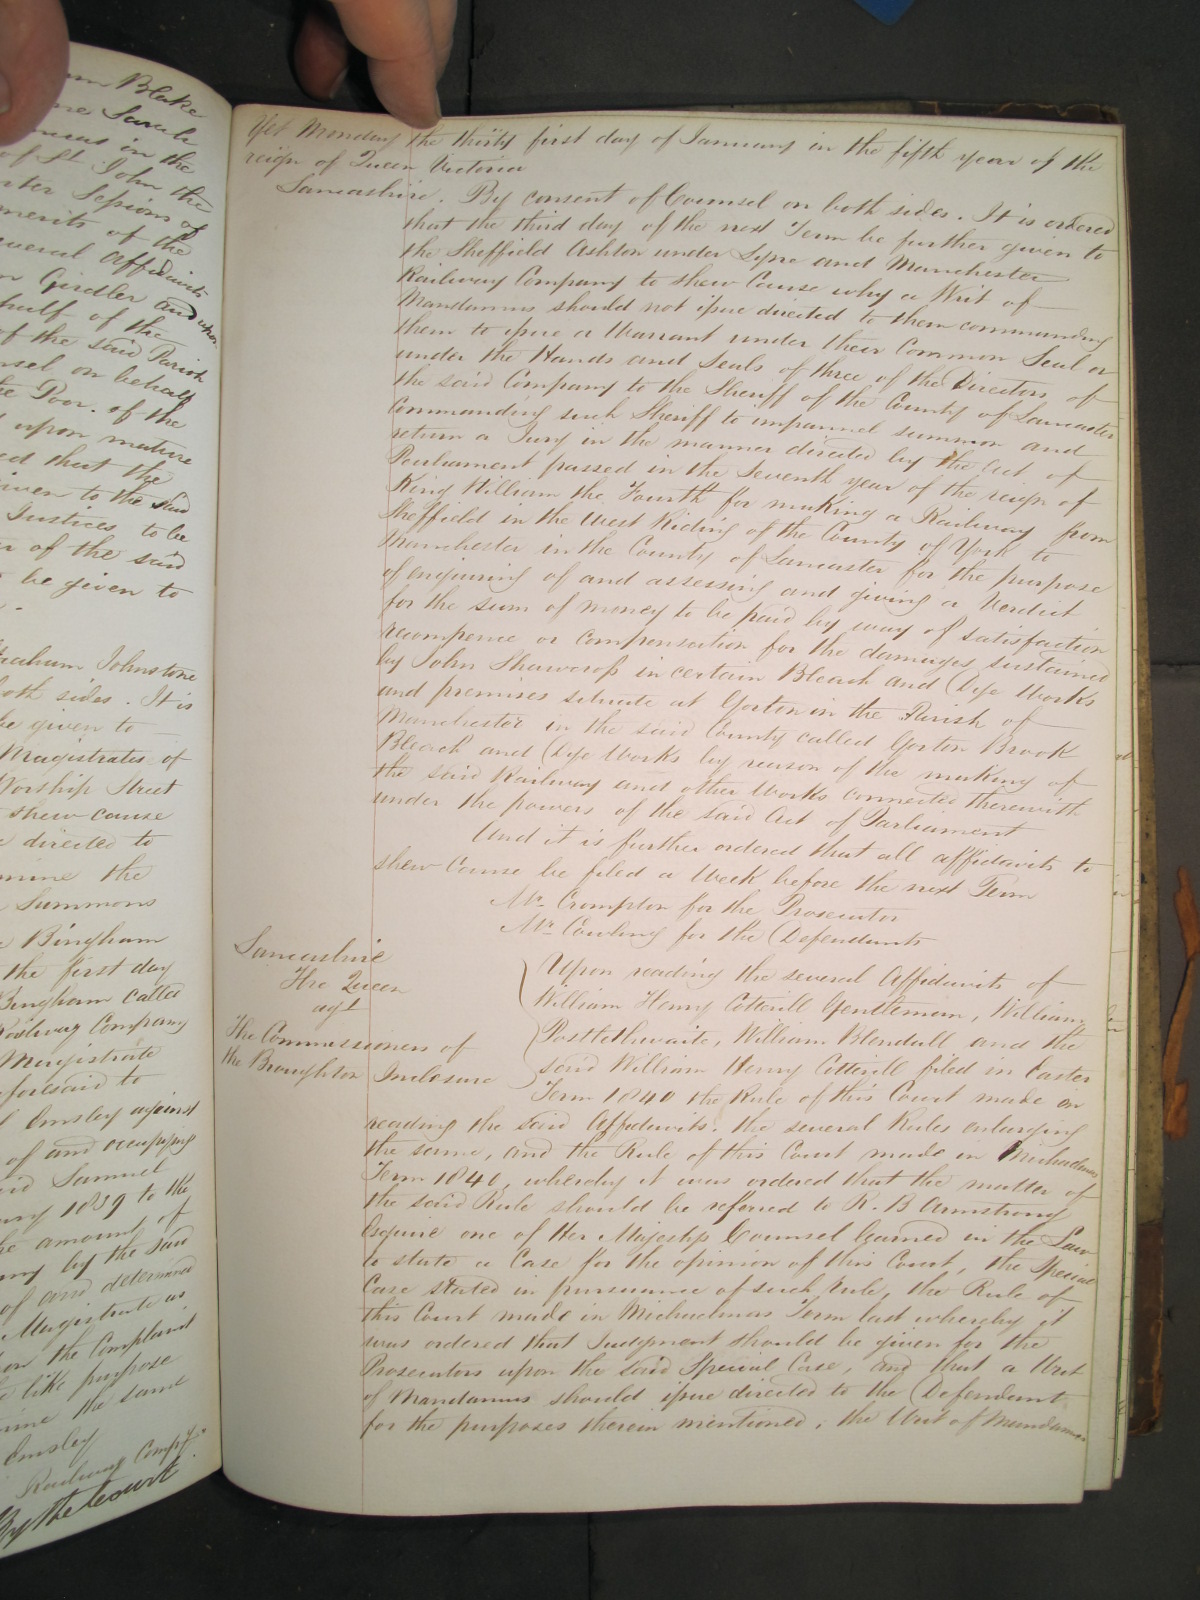 am Blake
ne Sarah
in the
of St. John the
rter Sessions of
merits of the
several Affidavits
n Girdler and upon
half of the
of the said Parish
nsel on behalf
e Poor of the
upon mature
ed that the
iven to the said
Justices to be
er of the said
be given to
raham Johnstone
both sides. It is
be given to
Magistrates of
Worship Street
shew cause
e directed to
mine the
Summons
e Bingham
the first day
Bingham called
Railway Company
Magistrate
foresaid to
l Emsley against
of and occupying
id Samuel
ary 1839 to the
he amount of
ny by the said
of and determined
Magistrate as
on the Complaint
e like purpose
mine the same
Emsley
Railway Compy.
By the Court
Yet Monday the thirty first day of January in the fifth year of the
reign of Queen Victoria
Lancashire. By consent of Counsel on both sides. It is ordered
that the third day of the next Term be further given to
the Sheffield Ashton under Lyne and Manchester
Railway Company to shew Cause why a Writ of
Mandamus should not issue directed to them commanding
them to issue a Warrant under their Common Seal or
under the Hands and Seals of three of the Directors of
the said Company to the Sheriff of the County of Lancaster
Commanding such Sheriff to impannel summon and
return a Jury in the manner directed by the Act of
Parliament passed in the Seventh year of the reign of
King William the Fourth for making a Railway from
Sheffield in the West Riding of the County of York to
Manchester in the County of Lancaster for the purpose
of enquiring of and assessing and giving a Verdict
for the sum of money to be paid by way of satisfaction
recompence or compensation for the damages sustained
by John Shawcross in certain Bleach and Dye Works
and premises situate at Gorton in the Parish of
Manchester in the said County called Gorton Brook
Bleach and Dye Works by reason of the making of
the said Railway and other Works connected therewith
under the powers of the said Act of Parliament
And it is further ordered that all affidavits to
shew Cause be filed a Week before the next Term
Mr. Crompton for the Prosecutor
Mr. Cowling for the Defendants
Lancashire
The Queen
agt
The Commissioners of
the Broughton Inclosure
Upon reading the several Affidavits of
William Henry Cotterill Gentleman, William
Postlethwaite, William Blendall and the
said William Henry Cotterill filed in Easter
Term 1840 the Rule of this Court made on
reading the said Affidavits. the several Rules enlarging
the same, and the Rule of this Court made in Michaelmas
Term 1840, whereby it was ordered that the matter of
the said Rule should be referred to R. B Armstrong
Esquire one of Her Majestys Counsel learned in the Law
to state a Case for the opinion of this Court, the Special
Case stated in pursuance of such Rule, the Rule of
this Court made in Michaelmas Term last whereby it
was ordered that Judgment should be given for the
Prosecutors upon the said Special Case, and that a Writ
of Mandamus should issue directed to the Defendants
for the purposes therein mentioned, the Writ of Mandamus